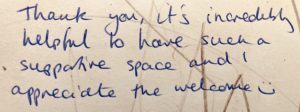 Thank you, it's incredibly
helpful to have such a
supportive space and I
appreciate the welcome